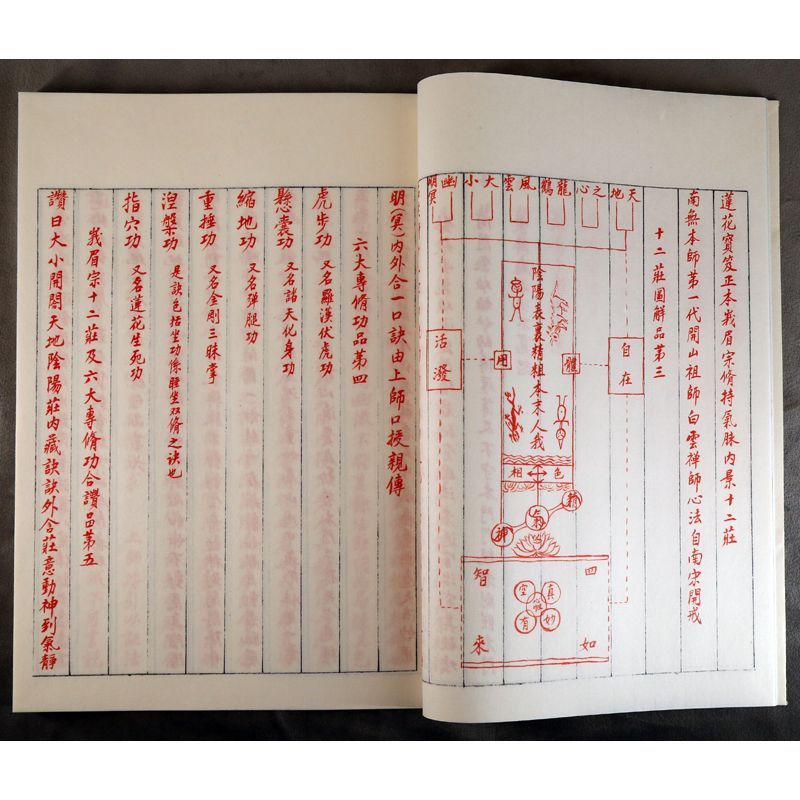 蓮花寶笈正本峩眉宗脩持氣脉內景十二莊
南無本師第一代開山祖師白雲禪師心法自南宋開戒
十二莊圖解品第三
天地之心龍鶴風雲大小幽明冥
自在
體
陰陽表裏精粗本末人我
用
活潑
色
相
精
氣
神
四
智
如
來
真
空
妙
有
心
明(冥)內外合一口訣由上師口授親傳
六大專脩功品第四
虎步功 又名羅漢伏虎功
懸囊功 又名諸天化身功
縮地功 又名彈腿功
重捶功 又名金剛三昧掌
涅槃功 是訣色括坐功係睡坐双脩之诀也
指穴功 又名蓮花生死功
峩眉宗十二莊及六大專脩功合讚品第五
讚曰大小開閤天地陰陽莊內藏訣訣外含莊意動神到氣靜